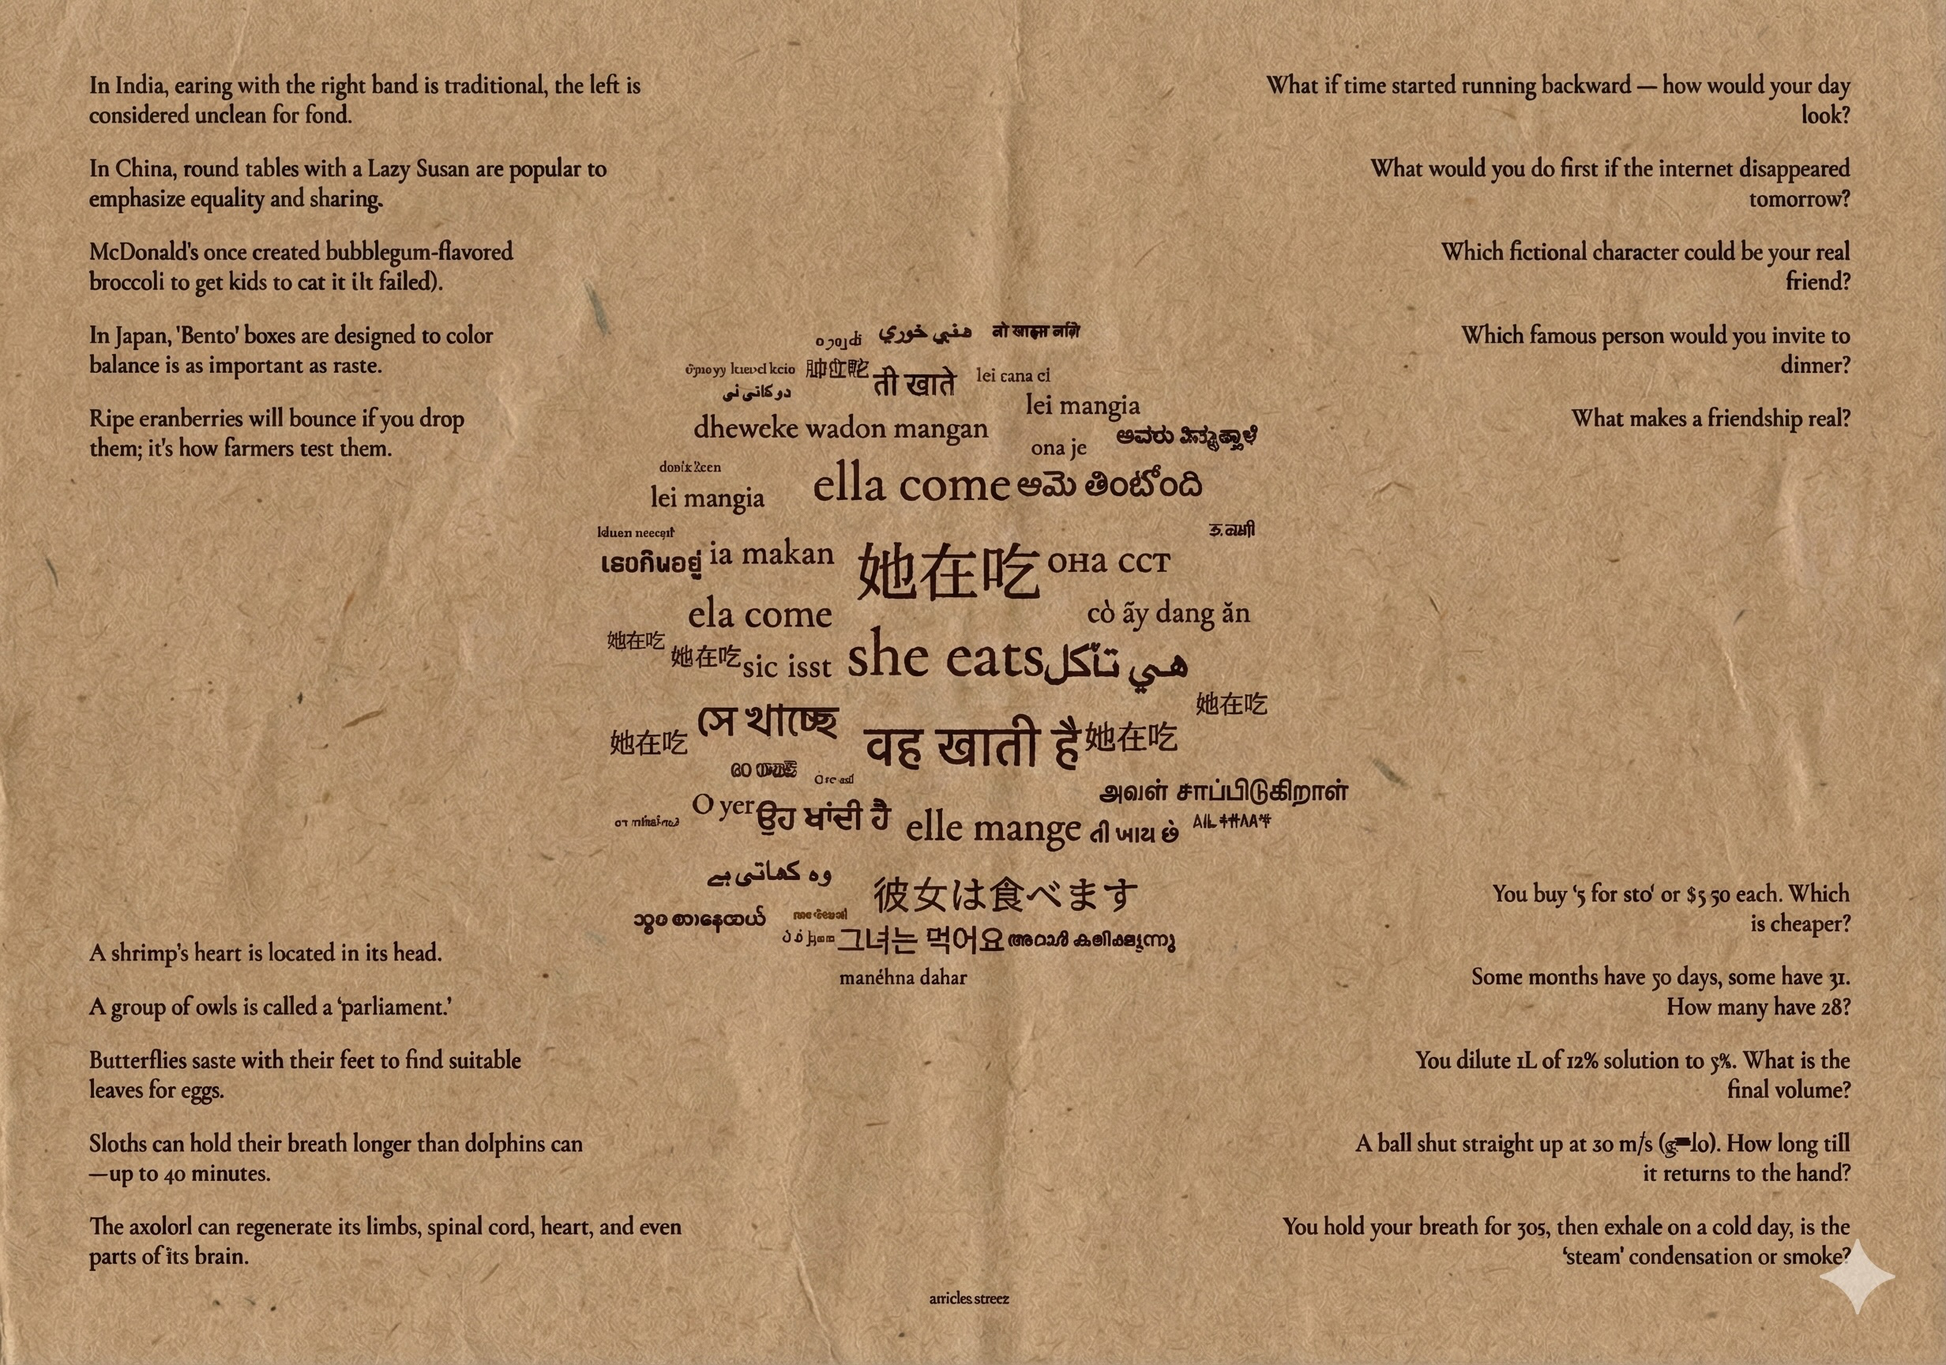 In India, earing with the right band is traditional, the left is
considered unclean for fond.
In China, round tables with a Lazy Susan are popular to
emphasize equality and sharing.
McDonald's once created bubblegum-flavored
broccoli to get kids to cat it ilt failed).
In Japan, 'Bento' boxes are designed to color
balance is as important as raste.
Ripe eranberries will bounce if you drop
them; it's how farmers test them.
What if time started running backward — how would your day
look?
What would you do first if the internet disappeared
tomorrow?
Which fictional character could be your real
friend?
Which famous person would you invite to
dinner?
What makes a friendship real?
هني خوري
ती खाते
lei cana ci
lei mangia
dheweke wadon mangan
ona je
lei mangia
ella come
ఆమె తింటోంది
เธอกินอยู่
ia makan
她在吃
она сст
ela come
cò ãy dang ăn
她在吃
她在吃
sic isst
she eats
هي تأكل
她在吃
她在吃
সে খাচ্ছে
वह खाती है
她在吃
அவள் சாப்பிடுகிறாள்
O yer
ਉਹ ਖਾਂਦੀ ਹੈ
elle mange
તી ખાય છે
وہ کھاتی ہے
彼女は食べます
그녀는 먹어요
manéhna dahar
A shrimp's heart is located in its head.
A group of owls is called a ‘parliament.’
Butterflies saste with their feet to find suitable
leaves for eggs.
Sloths can hold their breath longer than dolphins can
—up to 40 minutes.
The axolorl can regenerate its limbs, spinal cord, heart, and even
parts of its brain.
You buy ‘5 for sto‘ or $5 50 each. Which
is cheaper?
Some months have 50 days, some have 31.
How many have 28?
You dilute 1L of 12% solution to 5%. What is the
final volume?
A ball shut straight up at 30 m/s (g=lo). How long till
it returns to the hand?
You hold your breath for 305, then exhale on a cold day, is the
‘steam’ condensation or smoke?
arricles streez